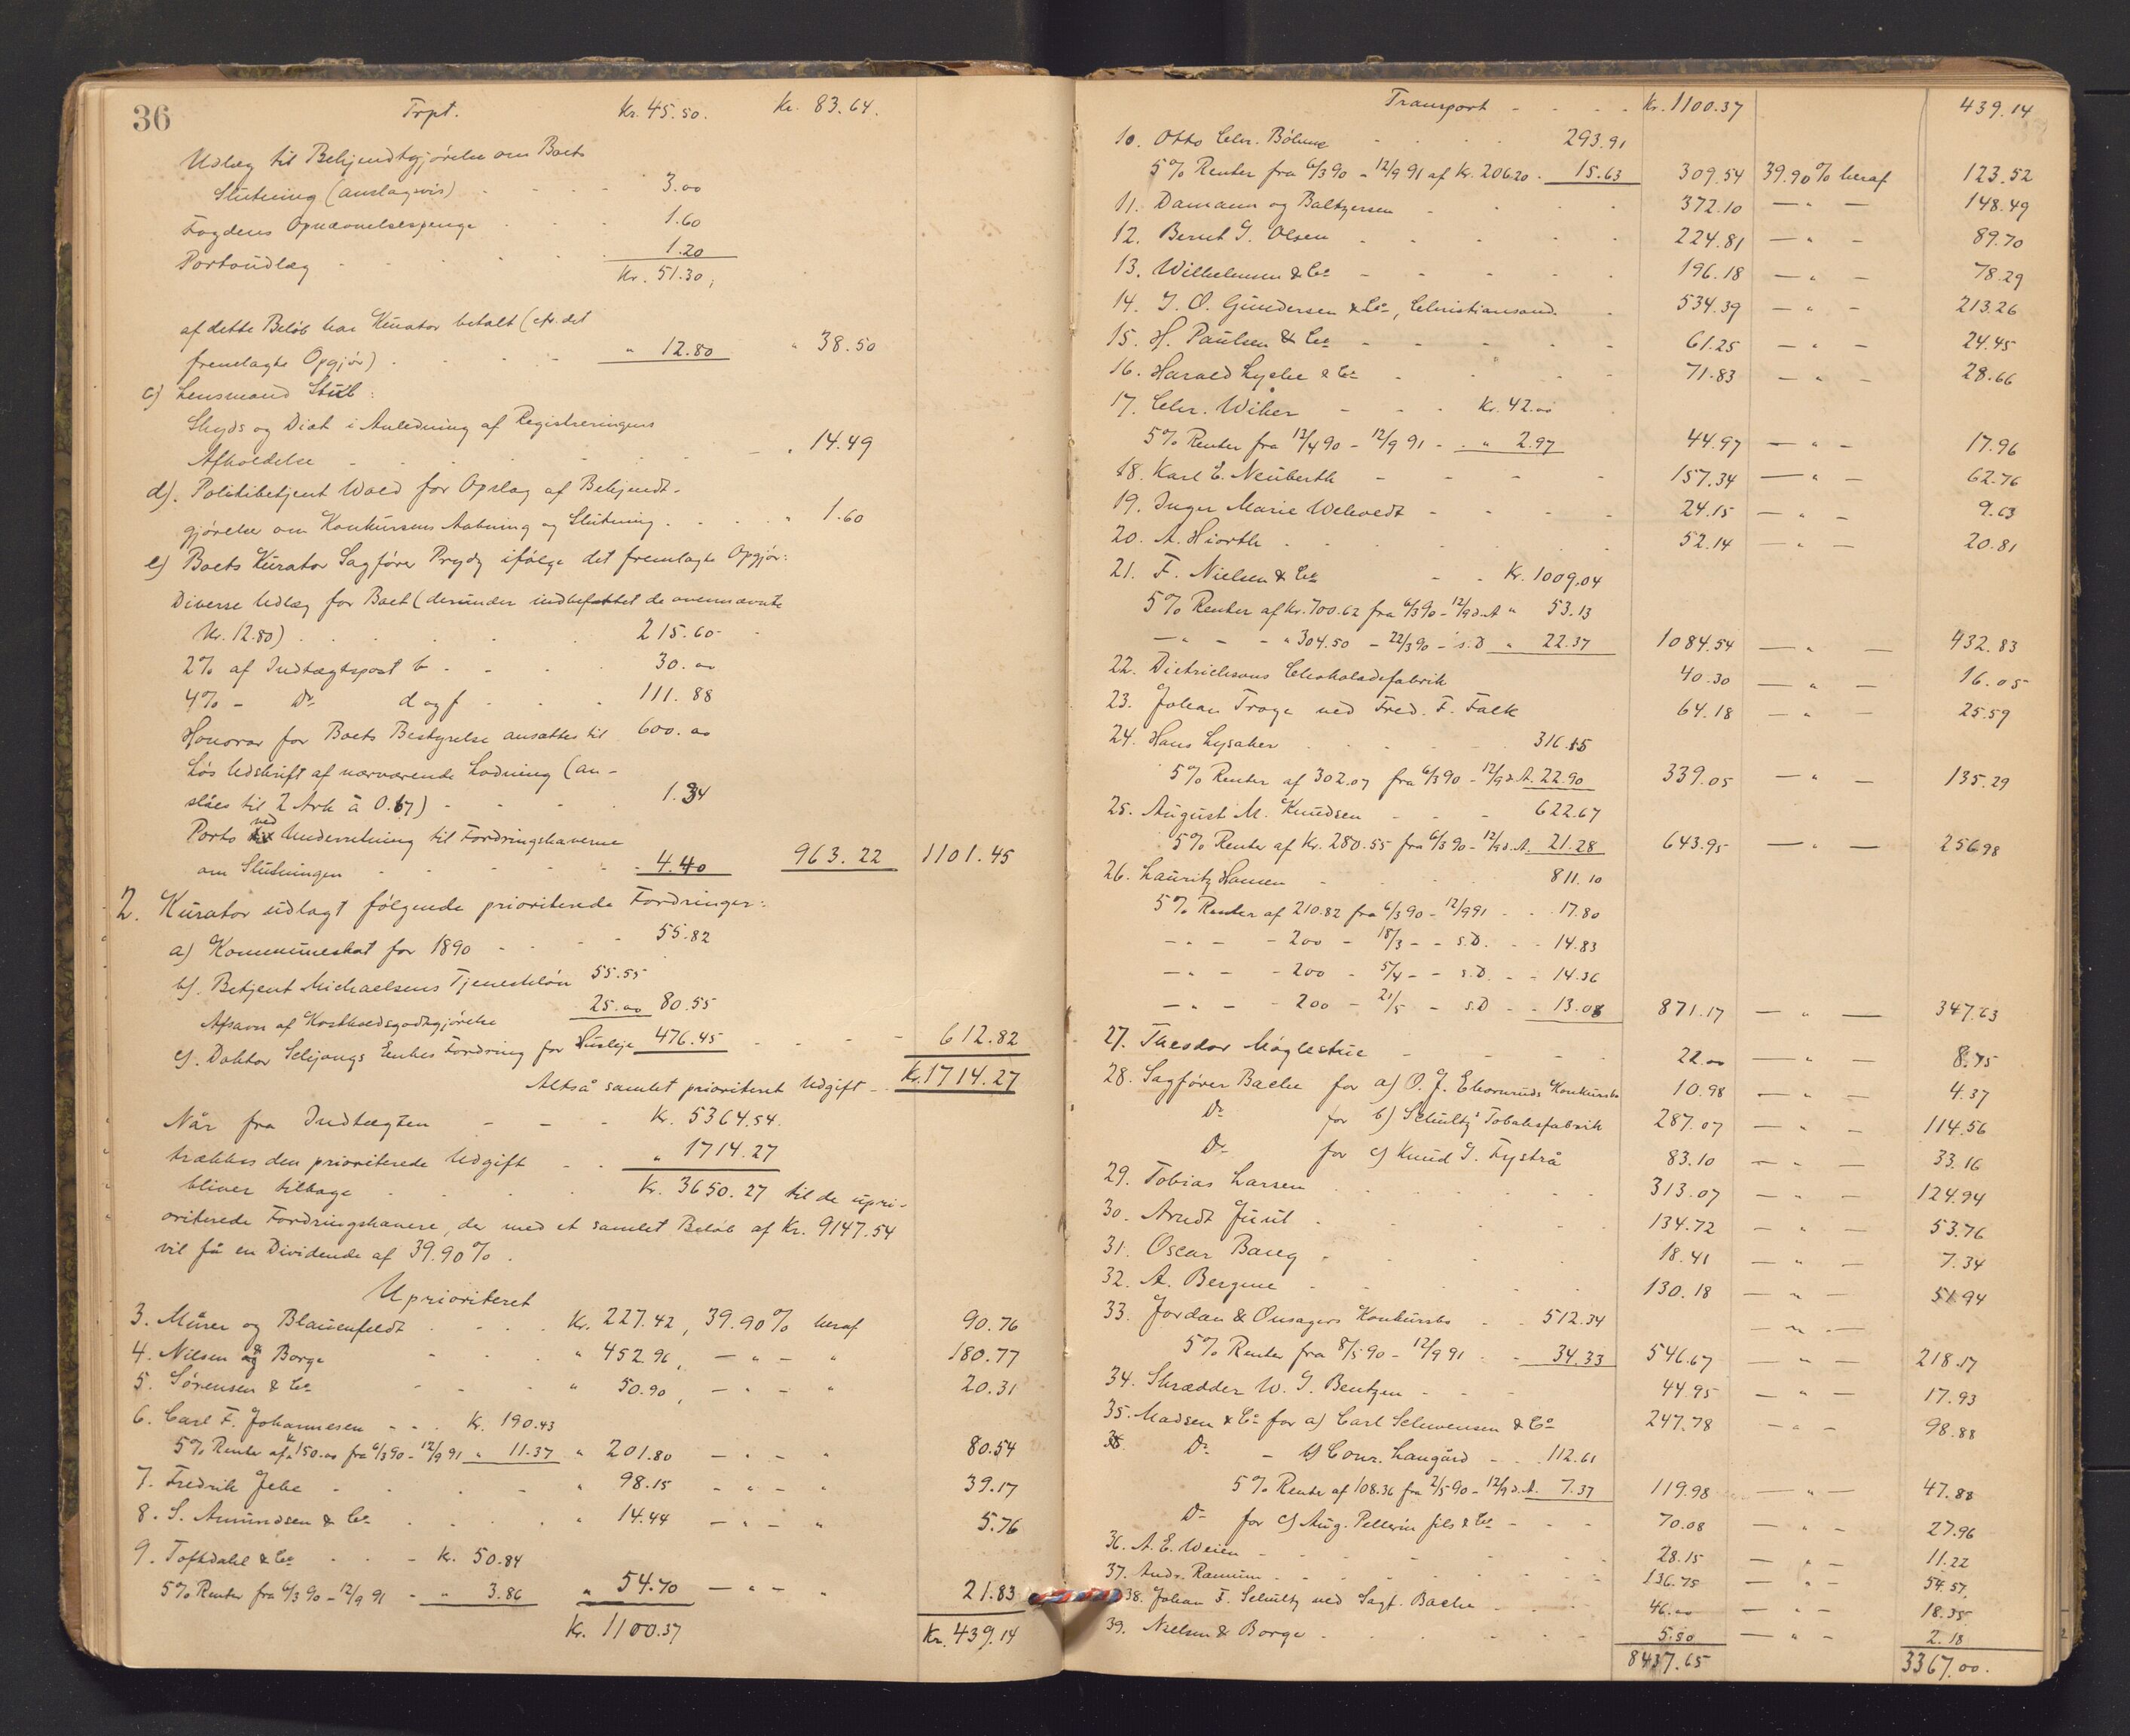 36
Trpt. Kr. 45.50. Kr. 83.64.
Udlæg til Bekjendtgjørelse om Boets
Slutning (anslagsvis) 3.00
Fogdens Opnævnelsespenge 1.60
Portoudlæg 1.20
Kr. 51.30,
af dette Beløb har Kurator betalt (cfr. det
fremlagte Opgjør) " 12.80 " 38.50
c) Lensmand Stub:
Skyds og Diæt i Anledning af Registreringens
Afholdelse " 14.49
d). Politibetjent Wold for Opslag af Bekjendt-
gjørelse om Konkursens Aabning og Slutning " 1.60
e) Boets Kurator Sagfører Prydz ifølge det fremlagte Opgjør:
Diverse Udlæg for Boet (derunder indbefattet de ovennævnte
Kr. 12.80) 215.60
2% af Indtægtspost b 30.00
4% - Do d og f 111.88
Honorar for Boets Bestyrelse ansættes til 600.00
Løs Udskrift af nærværende Lodning (an-
slåes til 2 Ark à 0.67) 1.34
Porto ved Underretning til Fordringshaverne
om Slutningen 4.40 963.22 1101.45
2. Kurator udlagt følgende prioriterede Fordringer:
a) Kommuneskat for 1890 55.82
b). Betjent Michaelsens Tjenesteløn 55.55
Afsavn af Kostholdsgodtgjørelse 25.00 80.55
c). Doktor Schjongs Enkes Fordring for Husleje 476.45 612.82
Altså samlet prioriteret Udgift Kr. 1714.27
Når fra Indtægten Kr. 5364.54.
trækkes den prioriterede Udgift " 1714.27
bliver tilbage Kr. 3650.27 til de upri-
oriterede Fordringshavere, der med et samlet Beløb af Kr. 9147.54
vil få en Dividende af 39.90%.
Uprioriteret
3. Mürer og Blauenfeldt Kr. 227.42, 39.90% heraf 90.76
4. Nilsen & Borge " 452.96, — " — " 180.77
5. Sørensen & Co " 50.90, — " — " 20.31
6. Carl F. Johannesen Kr. 190.43
5% Renter af Kr. 150.00 fra 6/3 90 - 12/9 91 " 11.37 " 201.80 — " — " 80.54
7. Fredrik Jebe " 98.15 — " — " 39.17
8. S. Amundsen & Co " 14.44 — " — " 5.76
9. Toftdahl & Co Kr. 50.84
5% Renter fra 6/3 90 - 12/9 91 " 3.86 " 54.70 — " — " 21.83
Kr. 1100.37 Kr. 439.14
Transport Kr. 1100.37 439.14
10. Otto Chr. Bølum 293.91
5% Renter fra 6/3 90 - 12/9 91 af Kr. 206.20 15.63 309.54 39.90% heraf 123.52
11. Damann og Baltzersen 372.10 — " — 148.49
12. Bernt G. Olsen 224.81 — " — 89.70
13. Wilhelmsen & Co 196.18 — " — 78.29
14. J. O. Gundersen & Co, Christiansand. 534.39 — " — 213.26
15. H. Paulsen & Co 61.25 — " — 24.45
16. Harald Lyche & Co 71.83 — " — 28.66
17. Chr. Wiker Kr. 42.00
5% Renter fra 12/4 90 - 12/9 91 " 2.97 44.97 — " — 17.96
18. Karl E. Neuberth 157.34 — " — 62.76
19. Inger Marie Wehvedt 24.15 — " — 9.63
20. A. Hiorth 52.14 — " — 20.81
21. F. Nielsen & Co Kr. 1009.04
5% Renter af Kr. 700.62 fra 6/3 90 - 12/9 d. A " 53.13
— " — - " 304.50 - 22/3 90 - s. D " 22.37 1084.54 — " — 432.83
22. Dietrichsons Chokoladefabrik 40.30 — " — 16.05
23. Johan Troye ved Fred. F. Falk 64.18 — " — 25.59
24. Hans Lysaker 316.15
5% Renter af 302.07 fra 6/3 90 - 12/9 d. A. 22.90 339.05 — " — 135.29
25. August M. Knudsen 622.67
5% Renter af Kr. 280.55 fra 6/3 90 - 12/9 d. A. 21.28 643.95 — " — 256.98
26. Lauritz Hansen 811.10
5% Renter af 210.82 fra 6/3 90 - 12/9 91 17.80
— " — - 200 - 18/3 - - s. D. 14.83
— " — - 200 - 5/4 - - s. D. 14.36
— " — - 200 - 21/5 - s. D 13.08 871.17 — " — 347.63
27. Theodor Møglestue 22.00 — " — 8.75
28. Sagfører Bache for a) O. J. Ekornruds Konkursbo 10.98 — " — 4.37
Do for b) Schultz' Tobaksfabrik 287.07 — " — 114.56
Do for c) Knud G. Tystrå 83.10 — " — 33.16
29. Tobias Larsen 313.07 — " — 124.94
30. Arndt Juul 134.72 — " — 53.76
31. Oscar Bareg 18.41 — " — 7.34
32. A. Bergene 130.18 — " — 51.94
33. Jordan & Onsagers Konkursbo 512.34 — " —
5% Renter fra 8/5 90 - 12/9 91 34.33 546.67 — " — 218.17
34. Skrædder W. G. Bentzen 44.95 — " — 17.93
35. Madsen & Co for a) Carl Schwensen & Co 247.78 — " — 98.88
Do - b) Conr. Langård 112.61
5% Renter af 108.36 fra 2/5 90 - 12/9 d. A. 7.37 119.98 — " — 47.88
Do for c) Aug. Pellerin fils & Co 70.08 — " — 27.96
36. A. E. Weien 28.15 — " — 11.22
37. Andr. Ramum 136.75 — " — 54.57
38. Johan F. Schultz ved Sagf. Bache 46.00 — " — 18.35
39. Nielsen & Borge 5.50 — " — 2.18
8437.65 3367.00.